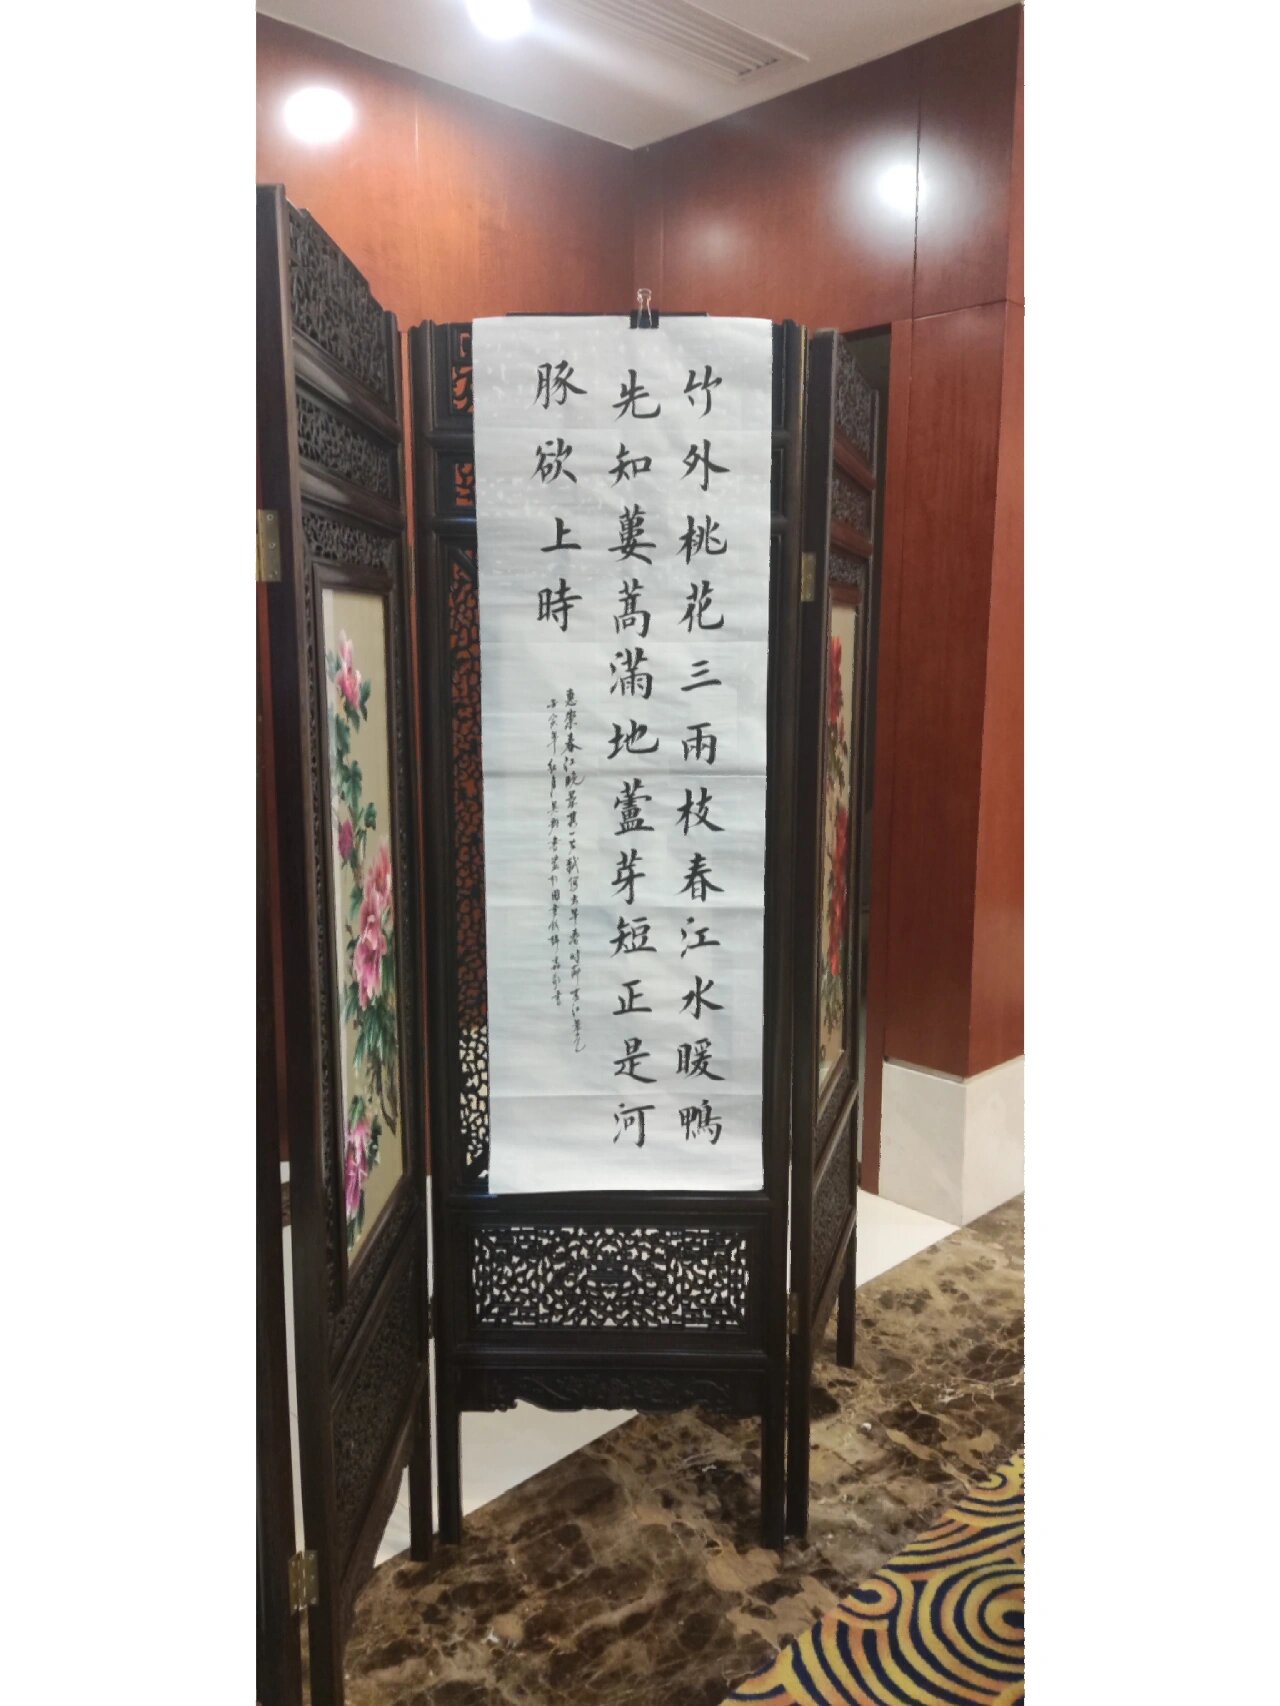 竹外桃花三兩枝春江水暖鴨
先知蔞蒿滿地蘆芽短正是河
豚欲上時
惠崇春江晚景其一蘇軾
壬寅年